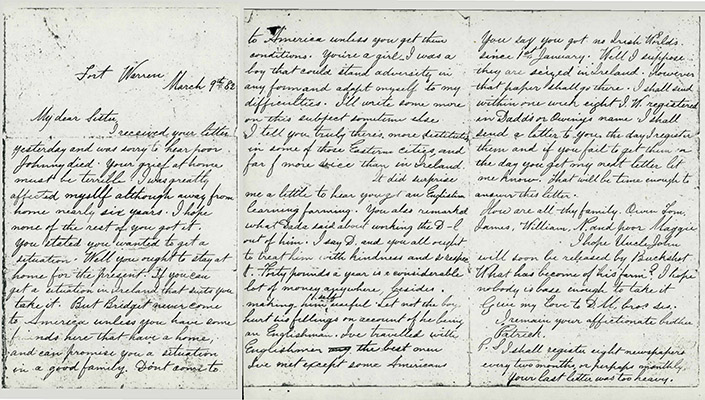 Fort Warren
March 9th 82
My dear Sister
I received your letter
yesterday and was sorry to hear poor
Johnny died. Your grief at home
must be terrible. I was greatly
affected myself although away from
home nearly six years. I hope
none of the rest of you got it.
You stated you wanted to get a
situation. Well you ought to stay at
home for the present. If you can
get a situation in Ireland that suits you
take it. But Bridget never come
to America unless you have some
here that have a home,
and can promise you a situation
in a good family. Dont come to
to America unless you get them
conditions. You're a girl. I was a
boy that could stand adversity in
any form and adapt myself to my
difficulties. I'll write some more
on this subject sometime else
I tell you truly there's more destitute
in some of those Eastern cities, and
far f more vice than in Ireland
It did surprise
me a little to hear you got an Englishman
learning farming. You also remarked
what Dada said about working the D-l
out of him. I say D. and you all ought
to treat him with kindness and respect
Forty pounds a year is a considerable
lot of money anywhere, besides
making him useful Let not the boy
hurt his feelings on account of he being
an Englishman. I've travelled with
Englishmen the best men
I've met except some Americans
You say you got no Irish Worlds
since 1st January. Well I suppose
they are seized in Ireland. However
that paper shall go there. I shall send
within one week eight I. W. registered
in Dadds or Owenys name I shall
send a letter to you, the day I register
them and if you fail to get them on
the day you get my next letter let
me know, that will be time enough to
answer this letter
How are all thy family. Owen Tom,
James, William, N. and poor Maggie
I hope Uncle John
will soon be released by Buckshot.
What has become of his farm? I hope
nobody is base enough to take it
Give my love to D. M. bros sis.
I remain your affectionate brother
Patrick.
P. S. I shall register eight newspapers
every two months or perhaps monthly.
your last letter was too heavy.